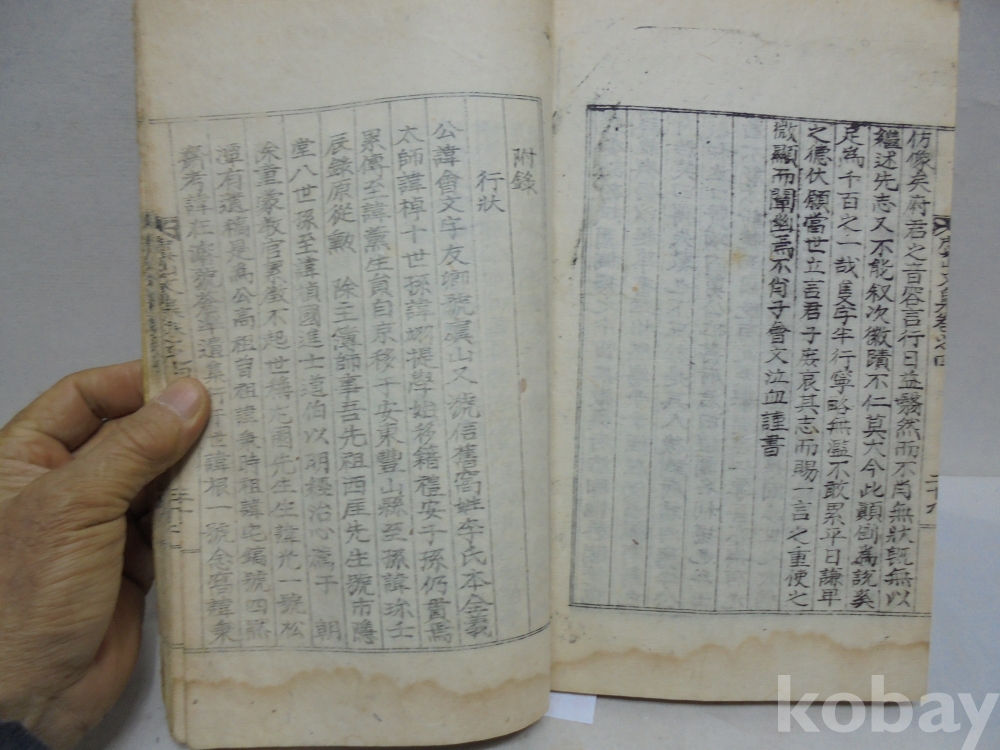 仿像矣府君之音容言行日益騷然而不肖無狀旣無以
繼述先志又不能叙次徽蹟不仁莫大今此顯刻爲說奚
足爲千百之一哉隻字半行寧略無濫不敢累平日謙卑
之德伏願當世立言君子哀其志而賜一言之重使之
微顯而闡幽焉不肖子會文泣血謹書
附錄
行狀
公諱會文字友卿號虞山又號信舊窩姓李氏本全義
太師諱棹十世孫諱提學始移籍禮安子孫仍貫焉
累傳至諱薰生員自京移于安東豐山縣至孫諱珎壬
辰錄原從勳 除主簿師事吾先祖西厓先生號市隱
堂八世孫至諱禎國進士道伯以明經治心薦于 朝
矣童蒙敎官不起世稱先生生諱光一號松
潭有遺稿是爲公高祖自祖諱秉時祖諱宅鎬號四
齋考諱在號遺集行于世諱根一號念窩諱秉
kobay